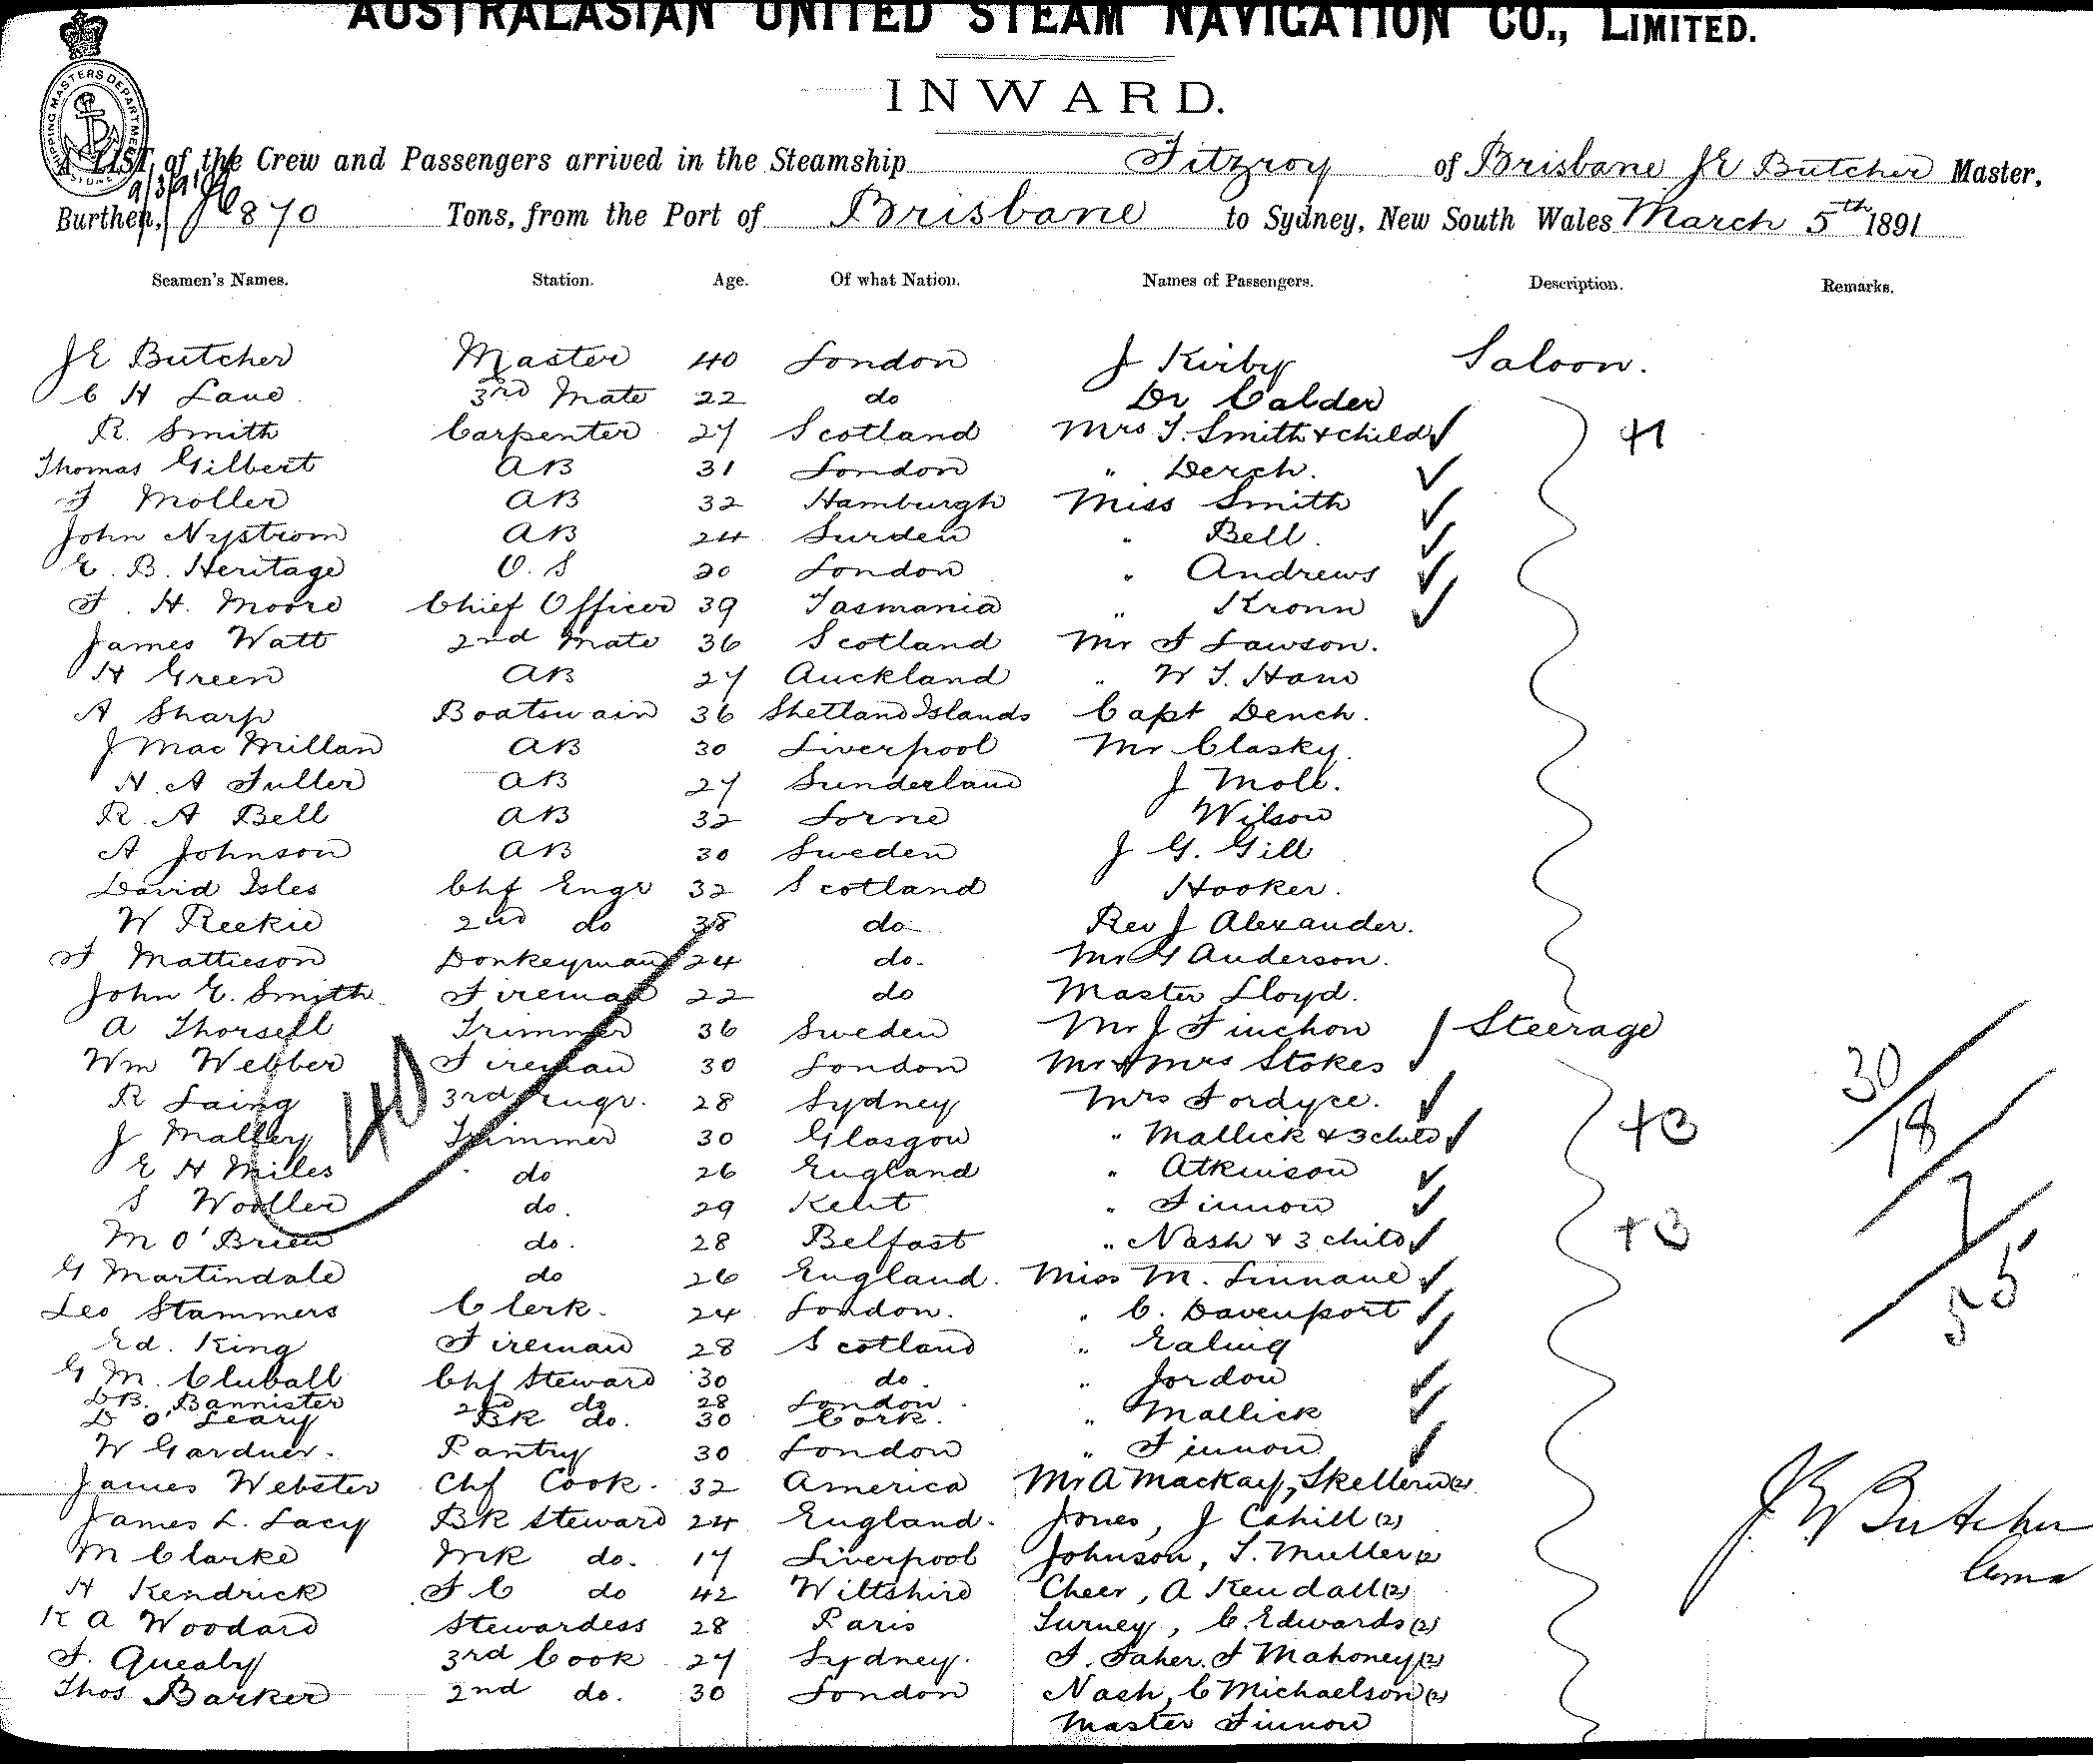 AUSTRALASIAN UNITED STEAM NAVIGATION CO., LIMITED.
INWARD.
SHIPPING MASTERS DEPARTMENT
A LIST of the Crew and Passengers arrived in the Steamship Fitzroy of Brisbane JE Butcher Master,
9/3/91
Burthen, 870 Tons, from the Port of Brisbane to Sydney, New South Wales March 5th 1891
Seamen's Names. Station. Age. Of what Nation. Names of Passengers. Description. Remarks.
JE Butcher Master 40 London J Kirby Saloon.
C H Lane 3rd Mate 22 do Dr Calder
R. Smith Carpenter 27 Scotland Mrs T. Smith & child +1
Thomas Gilbert AB 31 London " Derch.
F Moller AB 32 Hamburgh Miss Smith
John Nystrom AB 24 Surden " Bell.
E. B. Heritage O.S 20 London " Andrews
F. H. Moore Chief Officer 39 Tasmania " Kronn
James Watt 2nd Mate 36 Scotland Mr F Lawson.
H Green AB 27 Auckland " W T. Ham
A Sharp Boatswain 36 Shetland Islands Capt Dench.
J MacMillan AB 30 Liverpool Mr Clasky.
H. A Fuller AB 27 Sunderland J Moll.
R. A Bell AB 32 Lorne Wilson
A Johnson AB 30 Sweden J G. Gill
David Isles Chf Engr 32 Scotland Hooker.
W Reekie 2nd do 38 do Rev J Alexander.
F Mattieson Donkeyman 24 do. Mr G Anderson.
John E. Smith Fireman 22 do Master Lloyd.
A Thorsell Trimmer 36 Sweden Mr J Finchon Steerage
Wm Webber Fireman 30 London Mr & Mrs Stokes
R Laing 3rd Engr. 28 Sydney Mrs Fordyce.
J Malley Trimmer 30 Glasgow " Mallick & 3 child +3
E H Miles do 26 England " Atkinson
S Wooller do. 29 Kent " Finnon
M O'Brien do. 28 Belfast " Nash & 3 child +3
G Martindale do 26 England. Miss M. Linnane
Leo Stammers Clerk. 24 London. " C. Davenport
Ed. King Fireman 28 Scotland " Ealing
G M. Cluball Chf Steward 30 do. " Jordon
D B. Bannister 2nd do 28 London.
D O'Leary BK do. 30 Cork. " Mallick
W Gardner. Pantry 30 London " Finnon
James Webster Chf Cook. 32 America Mr A Mackay, Skellern (2)
James L. Lacy BK Steward 24 England. Jones, J Cahill (2)
M Clarke MK do. 17 Liverpool Johnson, T. Muller (2)
H Kendrick F C do 42 Wiltshire Cheer, A Kendall (2)
K A Woodard Stewardess 28 Paris Turney, C. Edwards (2)
F. Quealy 3rd Cook 27 Sydney. F. Faher. F Mahoney (2)
Thos Barker 2nd do. 30 London Nash, C Michaelson (2)
Master Finnon
40
30
18
7
55
J E Butcher